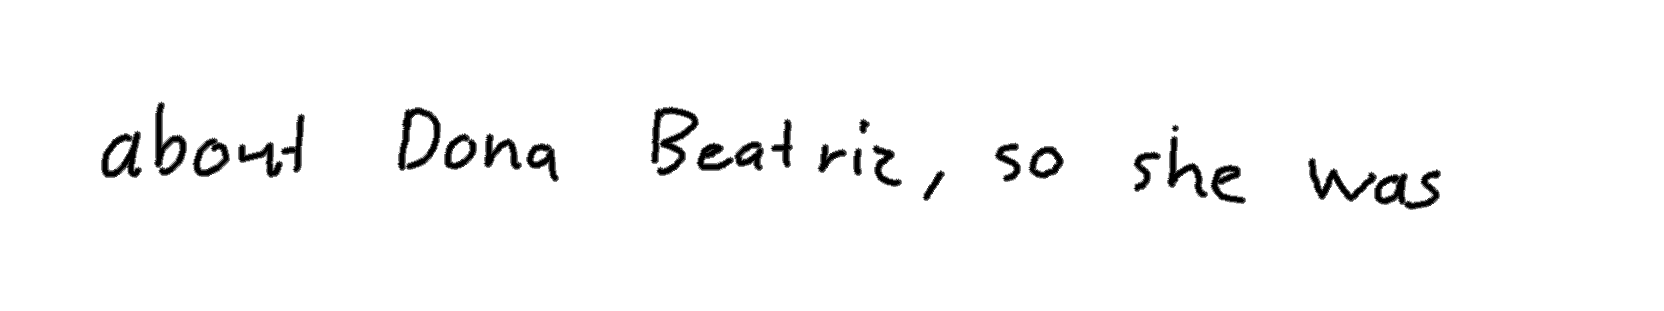 about Dona Beatriz, so she was